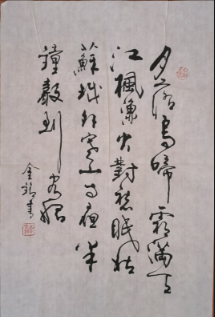 月落烏啼霜滿天
江楓漁火對愁眠姑
蘇城外寒山寺夜半
鐘聲到客船
金 書